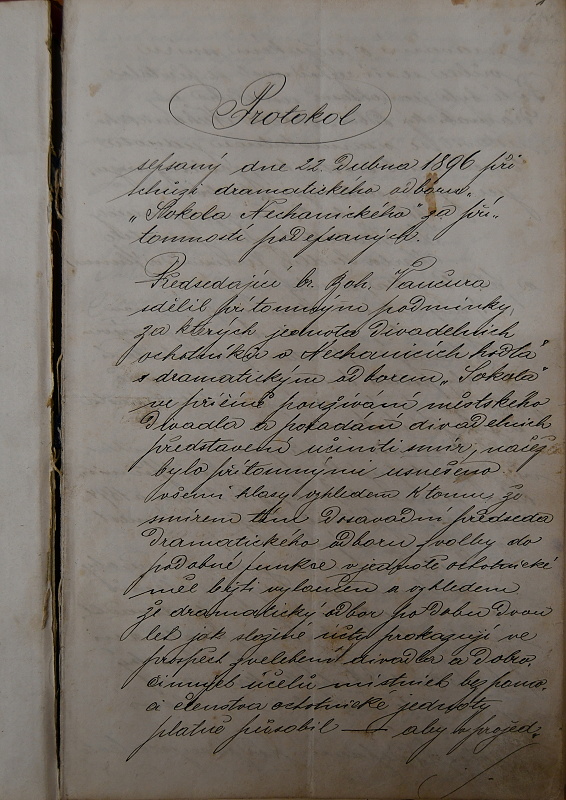 Protokol
sepsaný dne 22. Dubna 1896 při
schůzi dramatického odboru
„Sokola Nechanického" za pří-
tomnosti podepsaných.
Předsedající br. Boh. Vančura
sdělil přítomným podmínky,
za kterých jednota divadelních
ochotníků v Nechanicích hodlá
s dramatickým odborem „Sokola"
ve příčině používání městského
divadla a pořádání divadelních
představení učiniti smír, načež
bylo přítomnými usnešeno
všemi hlasy vzhledem k tomu, že
smírem tím dosavadní předseda
dramatického odboru z volby do
podobné funkce v jednotě ochotnické
měl býti vyloučen a vzhledem
že dramatický odbor po dobu dvou
let jak složené účty prokazují ve
prospěch zvelebení divadla a dobro-
činných účelů místních bez pomo-
ci členstva ochotnické jednoty
platně působil — aby v projed-